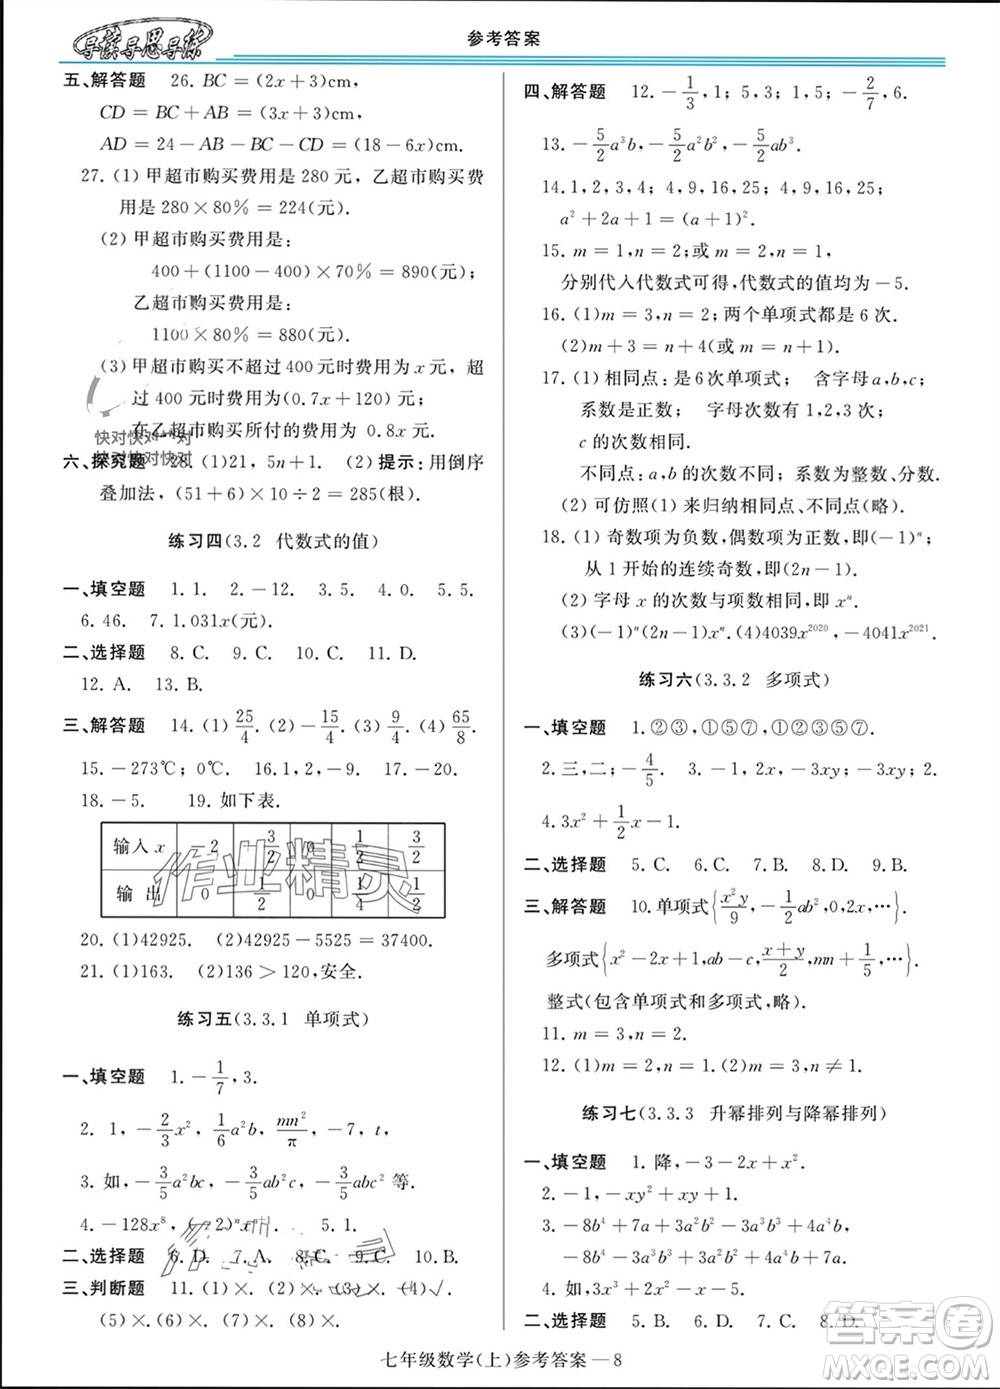 导读导思导练
参考答案
五、解答题 26. BC=(2x+3)cm
CD=BC+AB=(3x+3)cm.
AD=24-AB-BC-CD=(18-6x)cm.
27. (1) 甲超市购买费用是 280 元,乙超市购买费
用是 280×80%=224(元).
(2) 甲超市购买费用是:
400+(1100-400)×70%=890(元);
乙超市购买费用是:
1100×80%=880(元).
(3) 甲超市购买不超过 400 元时费用为 x 元,超
过 400 元时费用为(0.7x+120)元.
在乙超市购买所付的费用为 0.8x 元.
快对快对快对
快对快对快对
六、探究题 28. (1)21, 5n+1. (2) 提示:用倒序
叠加法,(51+6)×10÷2=285(根).
练习四(3.2 代数式的值)
一、填空题 1. 1. 2. -12. 3. 5. 4. 0. 5. 5.
6. 46. 7. 1.031x(元).
二、选择题 8. C. 9. C. 10. C. 11. D.
12. A. 13. B.
三、解答题 14. (1) 25/4. (2) -15/4. (3) 9/4. (4) 65/8.
15. -273℃; 0℃. 16. 1. 17. 3, -9.
18. -5. 19. 如下表.
输入 x -2 3/2 0 1/2 3/2
输 出 0 1/2 0 1/4 1/2
作业精灵
20. (1)42925. (2)42925-5525=37400.
21. (1)163. (2)136>120,安全.
练习五(3.3.1 单项式)
一、填空题 1. -1/7, 3.
2. 1, -2/3 x², 1/6 a²b, mn²/π, -7, t,
3. 如, -3/5 a²bc, -3/5 ab²c, -3/5 abc² 等.
4. -128x⁸, (-2)ⁿxⁿ. 5. 1.
二、选择题 6. D. 7. A. 8. C. 9. C. 10. B.
三、判断题 11. (1)×. (2)×. (3)×. (4)√.
(5)×. (6)×. (7)×. (8)×.
四、解答题 12. -1/3, 1; 5, 3; 1, 5; -2/7, 6.
13. -5/2 a³b, -5/2 a²b², -5/2 ab³.
14. 1, 2, 3, 4; 4, 9, 16, 25; 4, 9, 16, 25;
a²+2a+1=(a+1)².
15. m=1, n=2; 或 m=2, n=1,
分别代入代数式可得,代数式的值均为-5.
16. (1)m=3, n=2; 两个单项式都是 6 次.
(2)m+3=n+4(或 m=n+1).
17. (1) 相同点: 是 6 次单项式 含字母 a, b, c;
系数是正数; 字母次数有 1, 2, 3;
c 的次数相同.
不同点: a, b 的次数不同; 系数为整数、分数.
(2) 可仿照(1) 来归纳相同点、不同点(略).
18. (1) 奇数项为负数,偶数项为正数,即(-1)ⁿ;
从 1 开始的连续奇数,即(2n-1).
(2) 字母 x 的次数与项数相同,即 xⁿ.
(3)(-1)ⁿ(2n-1)xⁿ. (4)4039x²⁰²⁰, -4041x²⁰²¹.
练习六(3.3.2 多项式)
一、填空题 1. ②③, ①⑤⑦, ①②③⑤⑦.
2. 三, 二; -4/5. 3. -1, 2x, -3xy; -3xy; 2.
4. 3x²+1/2 x-1.
二、选择题 5. C. 6. C. 7. B. 8. D. 9. B.
三、解答题 10. 单项式{x²y/9, -1/2 ab², 0, 2x, …}.
多项式{x²-2x+1, ab-c, x+y/2, mn+1/2, …};
整式(包含单项式和多项式,略).
11. m=3, n=2.
12. (1)m=2, n=1. (2)m=2, n≠1.
练习七(3.3.3 升幂排列与降幂排列)
一、填空题 1. 降, -3-2x+x².
2. -1-xy²+xy+x²
3. -8b⁴+7a-3a²b²-5a³b+4a⁴b³,
-8b⁴+4a⁴b³-3a²b²-5a³b+7a.
4. 如, 3x³+2x²-x-5.
二、选择题 5. D. 6. C. 7. B. 8. D.
答案圈
MXQE.COM
七年级数学(上)参考答案—8